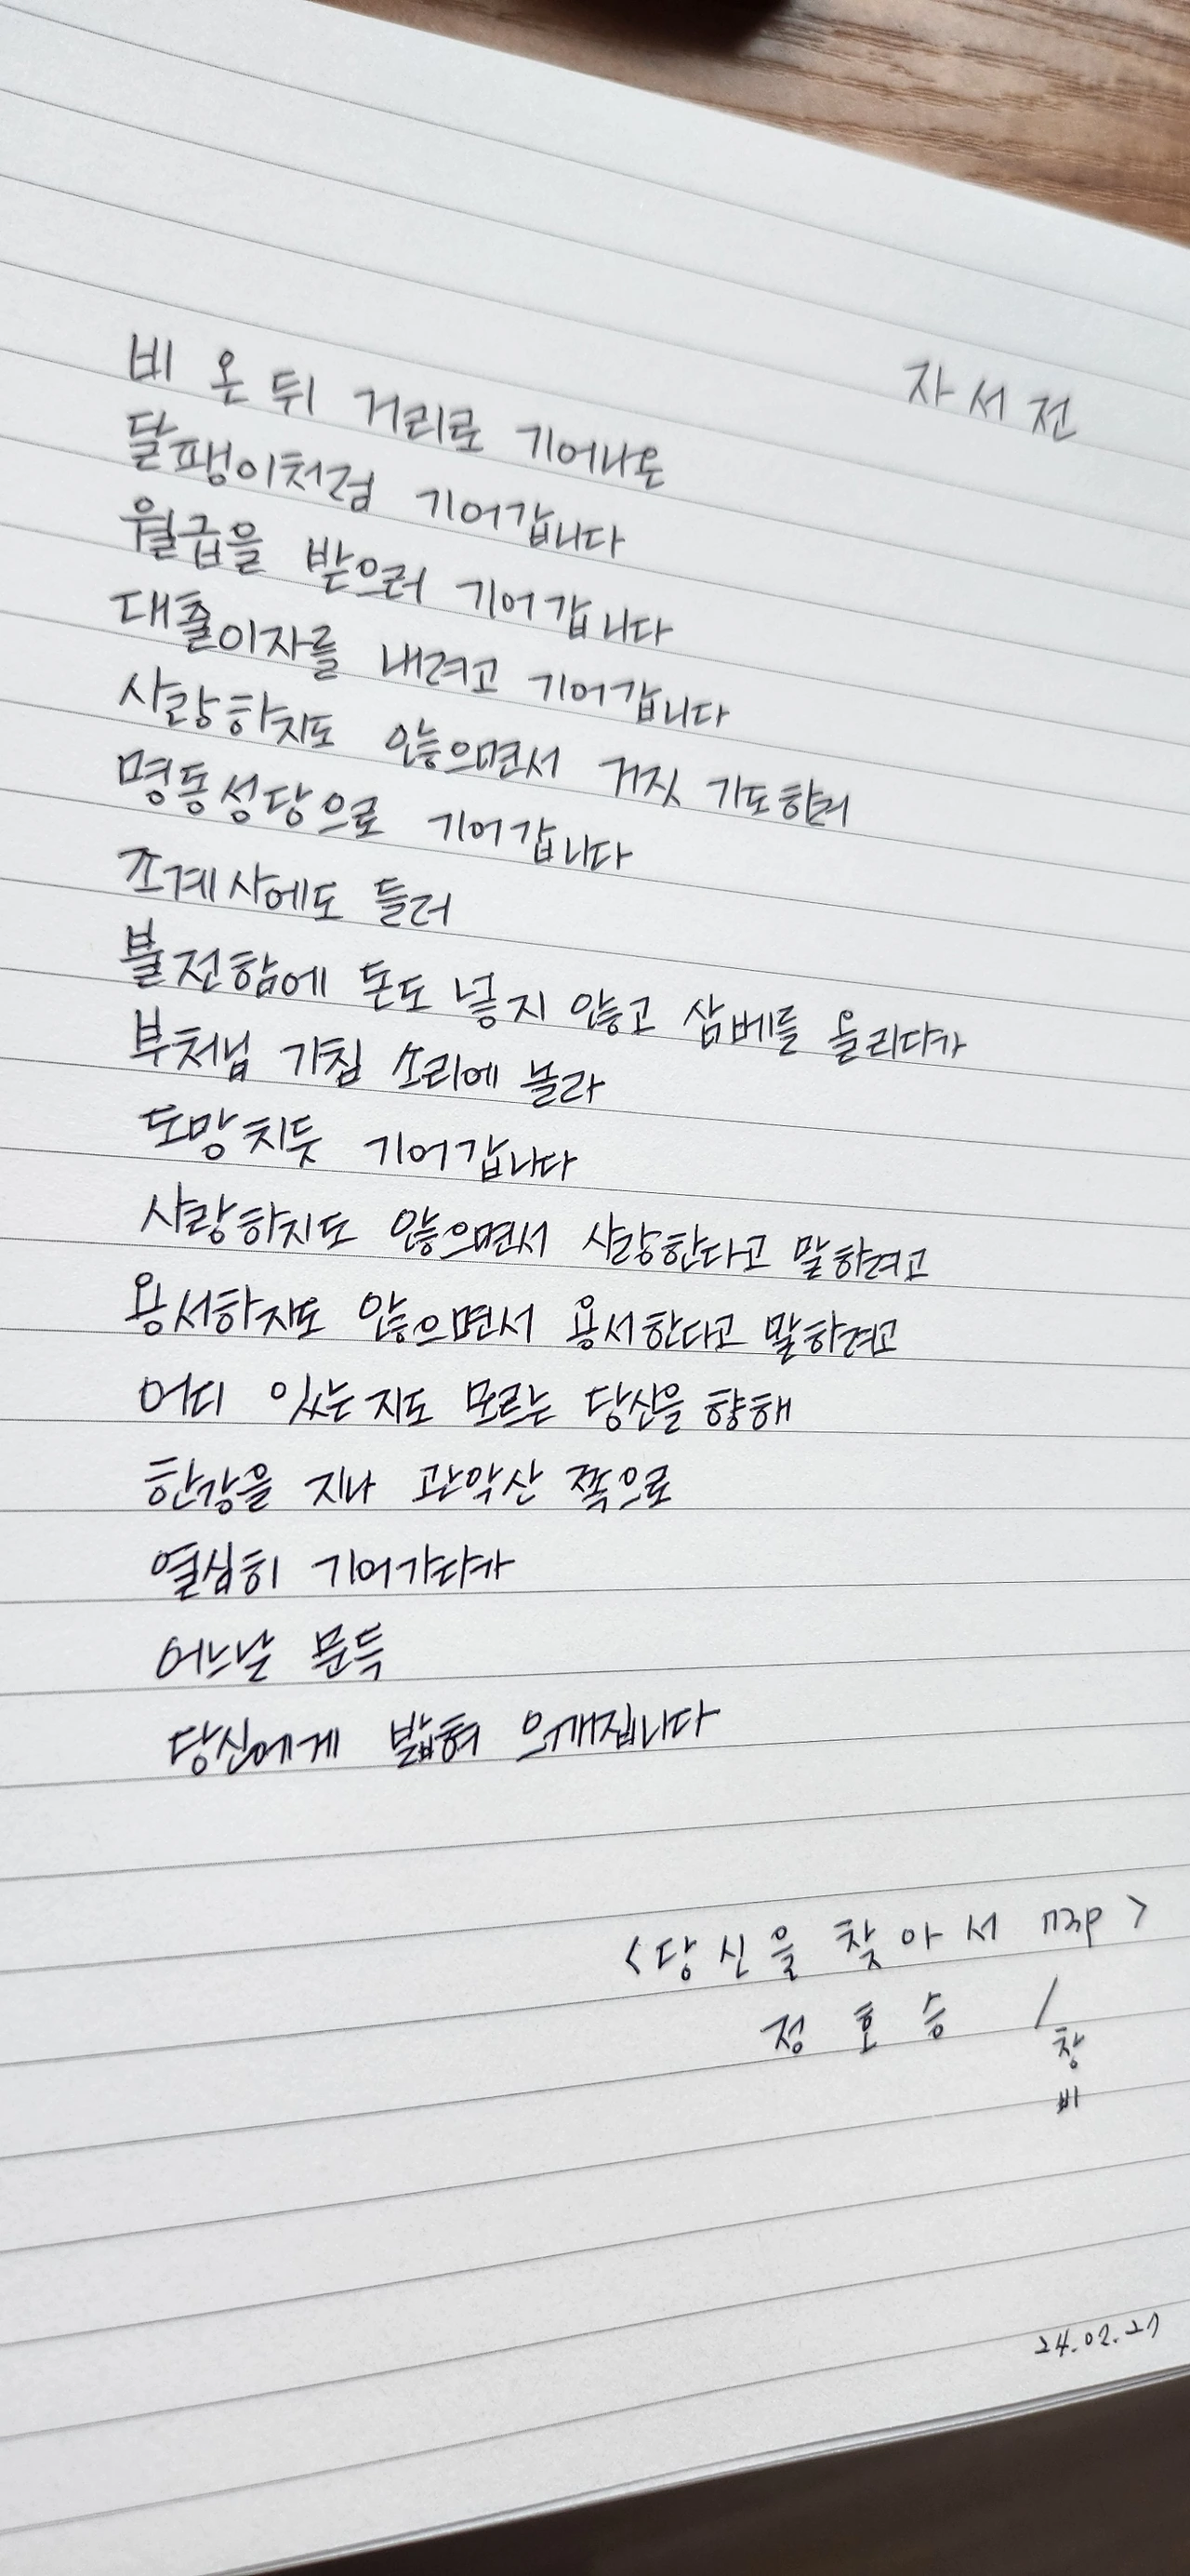 자서전
비 온 뒤 거리로 기어나온
달팽이처럼 기어갑니다
월급을 받으러 기어갑니다
대출이자를 내려고 기어갑니다
사랑하지도 않으면서 거짓 기도하러
명동성당으로 기어갑니다
조계사에도 들러
불전함에 돈도 넣지 않고 삼배를 올리다가
부처님 기침 소리에 놀라
도망치듯 기어갑니다
사랑하지도 않으면서 사랑한다고 말하려고
용서하지도 않으면서 용서한다고 말하려고
어디 있는지도 모르는 당신을 향해
한강을 지나 관악산 쪽으로
열심히 기어가다가
어느날 문득
당신에게 밟혀 으깨집니다
<당신을 찾아서 113p>
정호승 / 창비
24.02.27